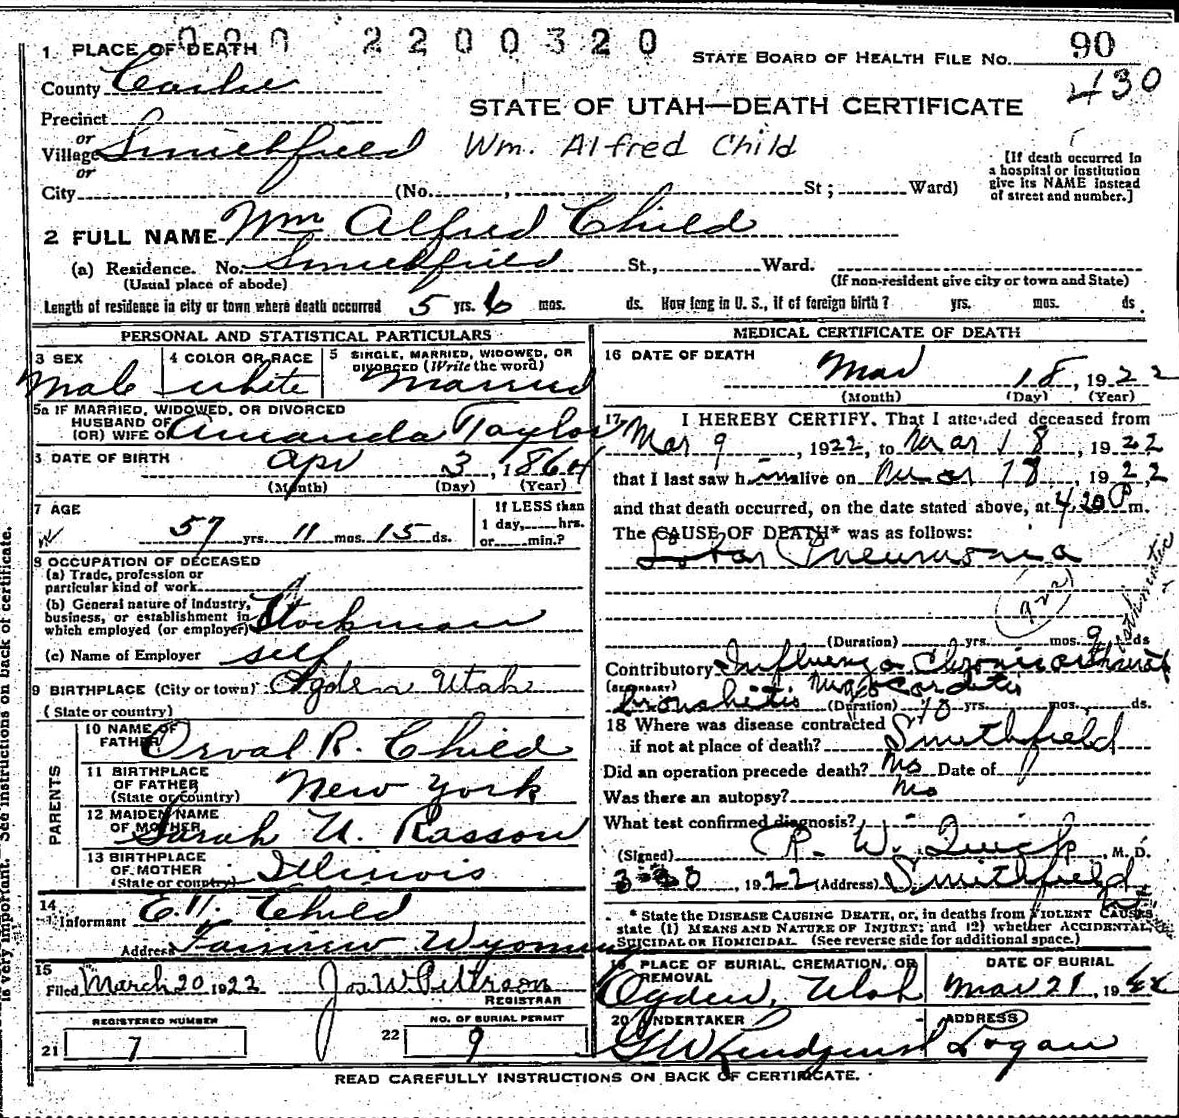 000 2200320
1. PLACE OF DEATH
STATE BOARD OF HEALTH FILE No. 90
County Cache
430
STATE OF UTAH—DEATH CERTIFICATE
Precinct
or
Village Smithfield
Wm. Alfred Child
or
[If death occurred in a hospital or institution give its NAME instead of street and number.]
City (No. , St ; Ward)
2 FULL NAME Wm Alfred Child
(a) Residence. No. Smithfield St., Ward.
(Usual place of abode) (If non-resident give city or town and State)
Length of residence in city or town where death occurred 5 yrs. 6 mos. ds. How long in U. S., if of foreign birth? yrs. mos. ds.
PERSONAL AND STATISTICAL PARTICULARS
3 SEX Male
4 COLOR OR RACE white
5 SINGLE, MARRIED, WIDOWED, OR DIVORCED (Write the word) Married
5a IF MARRIED, WIDOWED, OR DIVORCED
HUSBAND OF
(OR) WIFE OF Amanda Taylor
DATE OF BIRTH Apr 3, 1864
(Month) (Day) (Year)
7 AGE
57 yrs. 11 mos. 15 ds.
If LESS than
1 day, hrs.
or min.?
8 OCCUPATION OF DECEASED
(a) Trade, profession or
particular kind of work
(b) General nature of industry,
business, or establishment in
which employed (or employer) Stockman
(c) Name of Employer self
9 BIRTHPLACE (City or town) Ogden Utah
(State or country)
PARENTS
10 NAME OF
FATHER Orval R. Child
11 BIRTHPLACE
OF FATHER
(State or country) New York
12 MAIDEN NAME
OF MOTHER Sarah U. Rasson
13 BIRTHPLACE
OF MOTHER
(State or country) Illinois
14
Informant E. Child
Address Fairview Wyoming
15
Filed March 20 1922 Jos. W. Petterson
REGISTRAR
REGISTERED NUMBER
21 7
NO. OF BURIAL PERMIT
22 9
MEDICAL CERTIFICATE OF DEATH
16 DATE OF DEATH
Mar 18, 1922
(Month) (Day) (Year)
17 I HEREBY CERTIFY, That I attended deceased from
Mar 9, 1922, to Mar 18, 1922
that I last saw him alive on Mar 18, 1922
and that death occurred, on the date stated above, at 4 20 P m.
The CAUSE OF DEATH* was as follows:
Lobar Pneumonia
(Duration) yrs. mos. 9 ds
Contributory Influenza Chronic
(SECONDARY) bronchitis Myocarditis
(Duration) 10 yrs. mos. ds.
18 Where was disease contracted
if not at place of death? Smithfield
Did an operation precede death? No Date of
Was there an autopsy? No
What test confirmed diagnosis?
(Signed) R. W. Quick, M. D.
1922 (Address) Smithfield
* State the DISEASE CAUSING DEATH, or, in deaths from VIOLENT CAUSES,
state (1) MEANS AND NATURE OF INJURY; and (2) whether ACCIDENTAL,
SUICIDAL OR HOMICIDAL. (See reverse side for additional space.)
PLACE OF BURIAL, CREMATION, OR
REMOVAL
Ogden, Utah
DATE OF BURIAL
Mar 21, 19
20 UNDERTAKER
G W Lindquist
ADDRESS
Logan
READ CAREFULLY INSTRUCTIONS ON BACK OF CERTIFICATE.
is very important. See instructions on back of certificate.